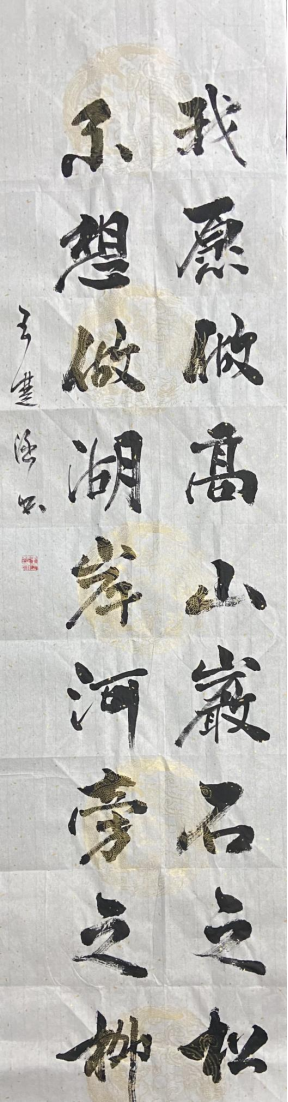 我愿做高山巖石之松
不想做湖岸河旁之柳